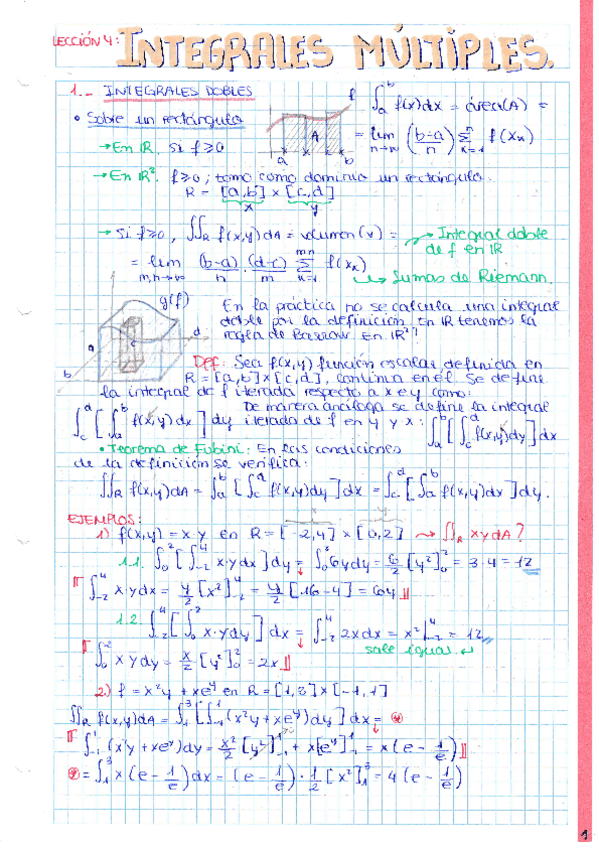 LECCIÓN 4: INTEGRALES MÚLTIPLES.
1.- INTEGRALES DOBLES
• Sobre un rectángulo
∫_a^b f(x)dx = área(A) =
= lim_{n→∞} (b-a/n) Σ_{k=1}^n f(x_k)
f
A
a
b
→ En ℝ, si f≥0
→ En ℝ², f≥0; tomo como dominio un rectángulo.
R = [a,b] × [c,d]
x y
→ Si f≥0, ∬_R f(x,y)dA = volumen(v) = → Integral doble
de f en ℝ
= lim_{m,n→∞} (b-a)/n · (d-c)/m Σ_{k=1}^{mn} f(x_k)
→ Sumas de Riemann.
g(f)
a
b
c
d
En la práctica no se calcula una integral
doble por la definición. En ℝ tenemos la
regla de Barrow. En ℝ²?
Def: Sea f(x,y) función escalar definida en
R = [a,b]×[c,d], continua en él. Se define
la integral de f iterada respecto a x e y como:
∫_c^d [∫_a^b f(x,y)dx] dy
De manera análoga se define la integral
iterada de f en y y x: ∫_a^b [∫_c^d f(x,y)dy] dx
• Teorema de Fubini: En las condiciones
de la definición se verifica:
∬_R f(x,y)dA = ∫_a^b [∫_c^d f(x,y)dy] dx = ∫_c^d [∫_a^b f(x,y)dx] dy.
EJEMPLOS:
x y
1) f(x,y) = x·y en R = [-2,4] × [0,2] → ∬_R xydA?
1.1. ∫_0^2 [∫_{-2}^4 x·ydx] dy = ∫_0^2 6ydy = 6/2 [y²]_0^2 = 3·4 = 12
∫_{-2}^4 x·ydx = y/2 [x²]_{-2}^4 = y/2 [16-4] = 6y
1.2. ∫_{-2}^4 [∫_0^2 x·ydy] dx = ∫_{-2}^4 2xdx = x²|_{-2}^4 = 12
sale igual
∫_0^2 xydy = x/2 [y²]_0^2 = 2x
2) f = x²y + xe^y en R = [1,3]×[-1,1]
∬_R f(x,y)dA = ∫_1^3 [∫_{-1}^1 (x²y + xe^y)dy] dx = ⊛
∫_{-1}^1 (x²y + xe^y)dy = x²/2 [y²]_{-1}^1 + x[e^y]_{-1}^1 = x(e - 1/e)
⊛ = ∫_1^3 x(e - 1/e)dx = (e - 1/e) · 1/2 [x²]_1^3 = 4(e - 1/e)
1